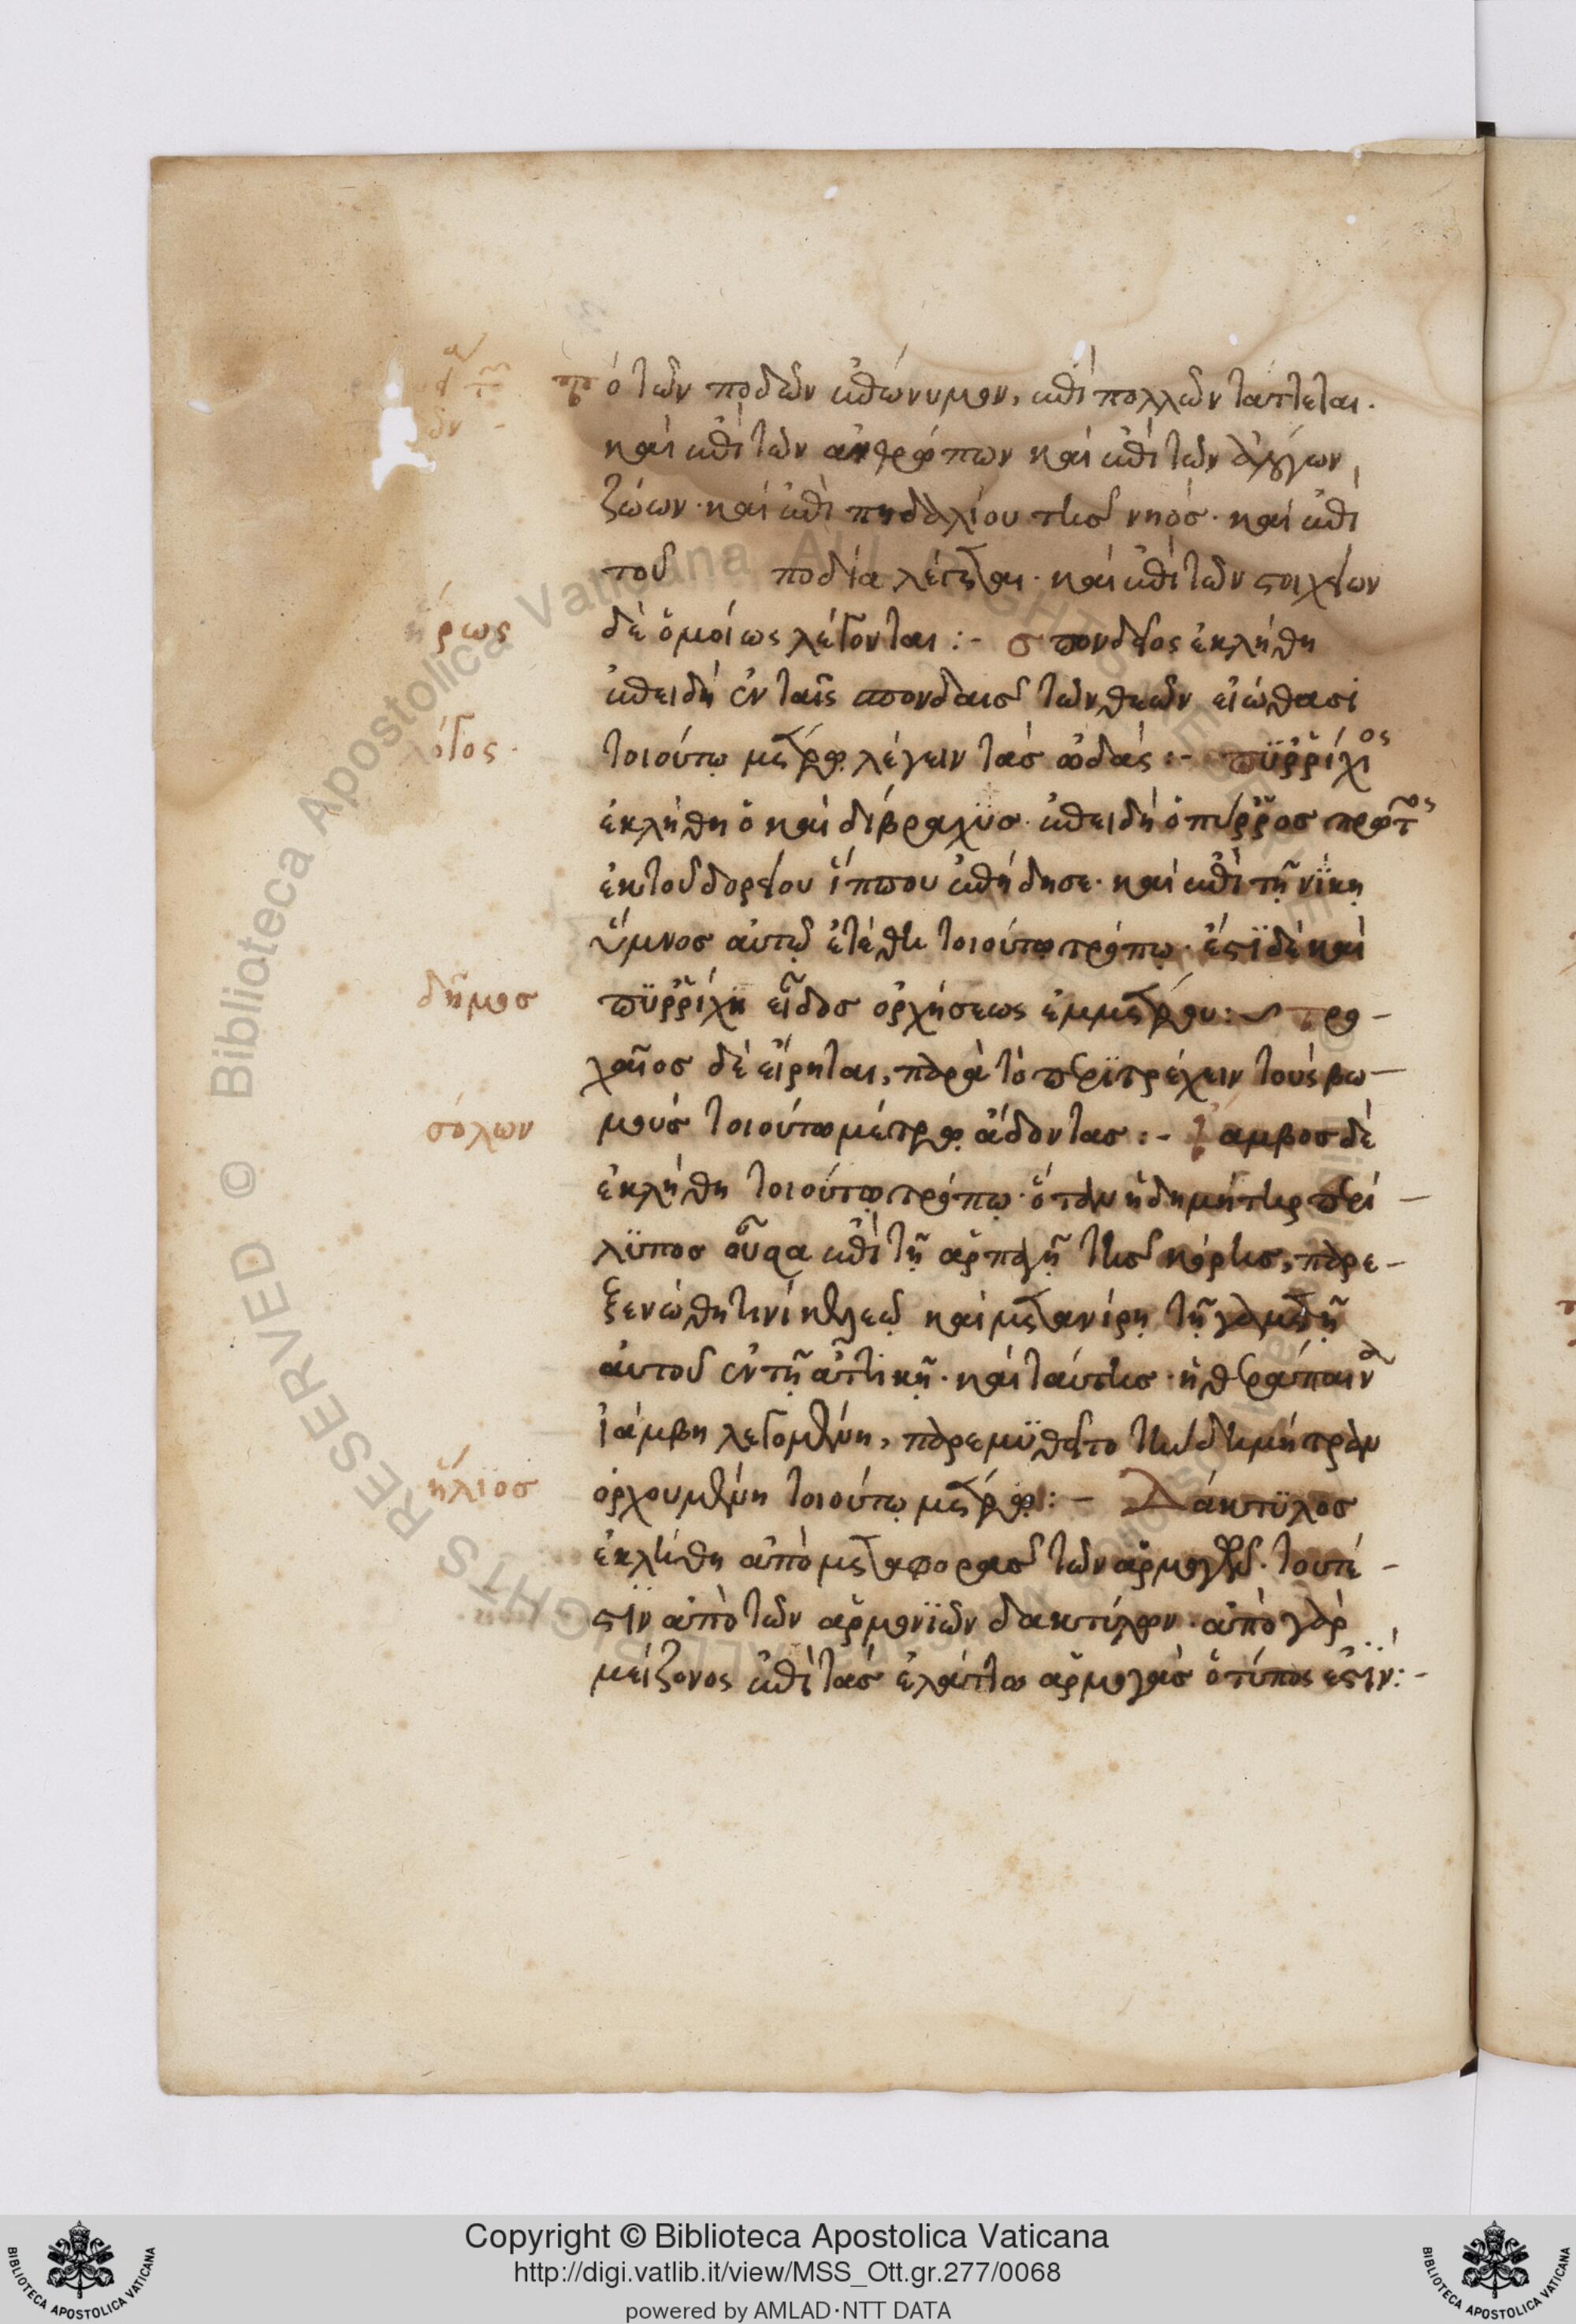 ὁ τῶν ποδῶν ἐπώνυμον, ἐπὶ πολλῶν τάττεται.
καὶ ἐπὶ τῶν ἀνθρώπων καὶ ἐπὶ τῶν ἀλόγων
ζώων· καὶ ἐπὶ πηδαλίου τῆς νηός· καὶ ἐπὶ
τοῦ ποδία λέγεται· καὶ ἐπὶ τῶν στιχείων
ἥρως
δὲ ὁμοίως λέγονται :- σπονδεῖος ἐκλήθη
ἐπειδὴ ἐν ταῖς σπονδαῖς τῶν θεῶν εἰώθασι
λόγος·
τοιούτῳ μέτρῳ λέγειν τὰς ὠδάς :- πϋρρίχιος
ἐκλήθη ὁ καὶ διβραχϋς· ἐπειδὴ ὁ πύρρος πρῶτος
ἐκ τοῦ δορείου ἵππου ἐπήδησε· καὶ ἐπὶ τῇ νίκῃ
ὕμνος αὐτῷ ἐτέθη τοιούτῳ τρόπῳ· ἔστϊ δὲ καὶ
δῆμος
πϋρρίχη εἶδος ὀρχήσεως ἐμμέτρου :~ τρο-
χαῖος δὲ εἴρηται, παρὰ τὸ περϊτρέχειν τοὺς βω-
σόλων
μοὺς τοιούτω μέτρῳ ἄδοντας :- ἴαμβος δὲ
ἐκλήθη τοιούτῳ τρόπῳ· ὅταν ἡ δημήτηρ περί-
λϋπος οὖσα ἐπὶ τῇ ἁρπαγῇ τῆς κόρης, παρε-
ξενώθη τινὶ κελεῷ καὶ μετανίρῃ τῇ γαμετῇ
αὐτοῦ ἐν τῇ ἀττικῇ· καὶ ταύτης ἡ θεράπαινα
ἰάμβη λεγομένη, παρεμϋθεῖτο τὴν δημήτραν
ἥλϊος
ὀρχουμένη τοιούτῳ μέτρῳ :- Δάκτϋλος
ἐκλήθη ἀπὸ μεταφορᾶς τῶν ἁρμογῶν· τουτέ-
στϊν ἀπὸ τῶν ἁρμονϊῶν δακτύλων· ἀπὸ γὰρ
μείζονος ἐπὶ τὰς ἐλάττω ἁρμογὰς ὁ τύπος ἐστϊν:-